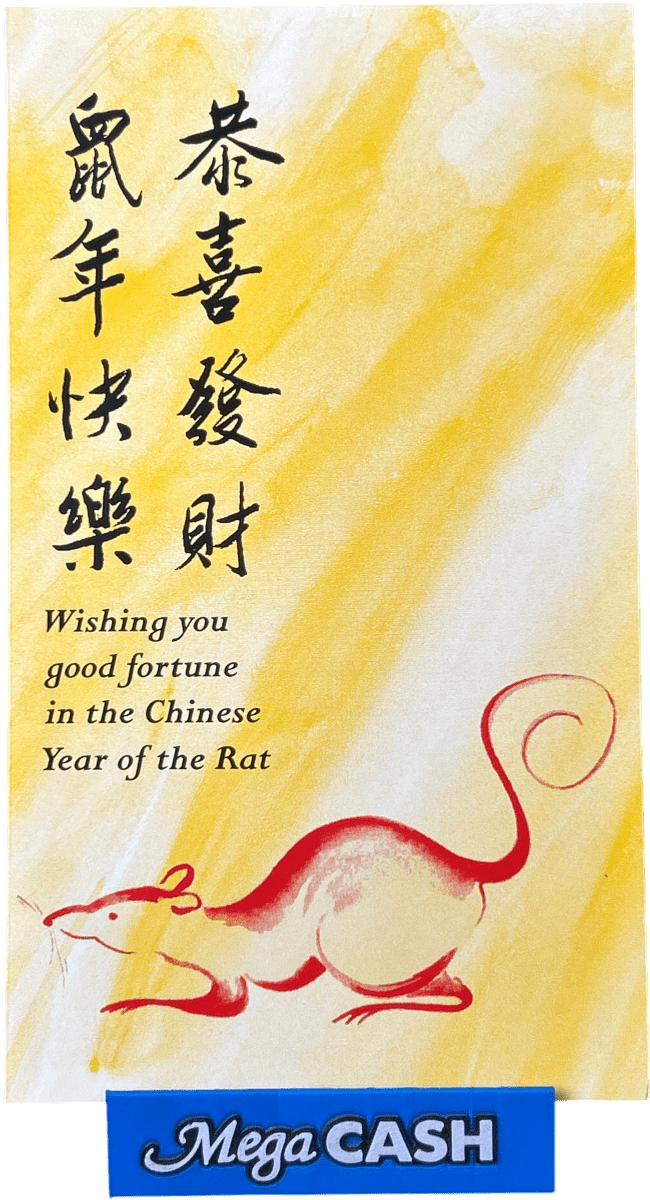 恭喜發財
鼠年快樂
Wishing you
good fortune
in the Chinese
Year of the Rat
Mega CASH